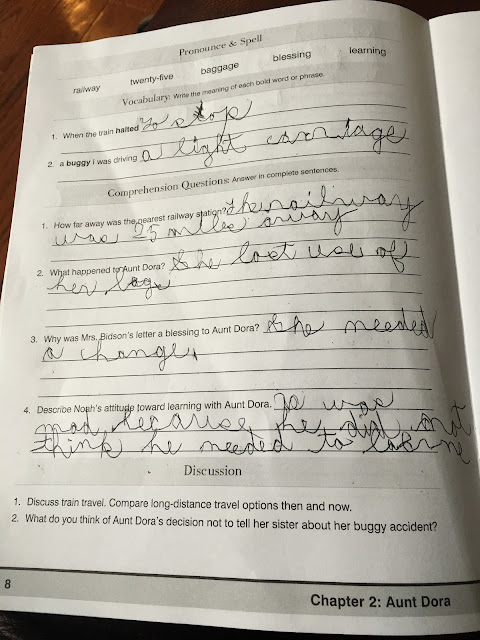 Pronounce & Spell
railway twenty-five baggage blessing learning
Vocabulary: Write the meaning of each bold word or phrase.
1. When the train halted To stop
2. a buggy I was driving a light carrtage
Comprehension Questions: Answer in complete sentences.
1. How far away was the nearest railway station? The railway
was 25 miles away
2. What happened to Aunt Dora? She lost use of
her legs
3. Why was Mrs. Bidson's letter a blessing to Aunt Dora? She needed
a change,
4. Describe Noah's attitude toward learning with Aunt Dora. He was
mad because he did not
think he needed to
Discussion
1. Discuss train travel. Compare long-distance travel options then and now.
2. What do you think of Aunt Dora's decision not to tell her sister about her buggy accident?
8
Chapter 2: Aunt Dora